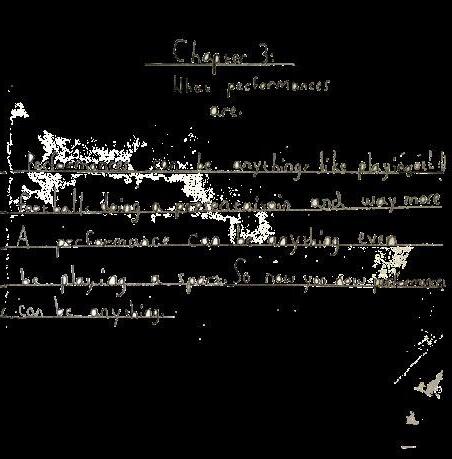 Chapter 3:
What performances
are.
Performances can be anything, like playing
football, doing a presentation and way more
A performance can be anything even
be playing a space. So now you now performan
can be anything.